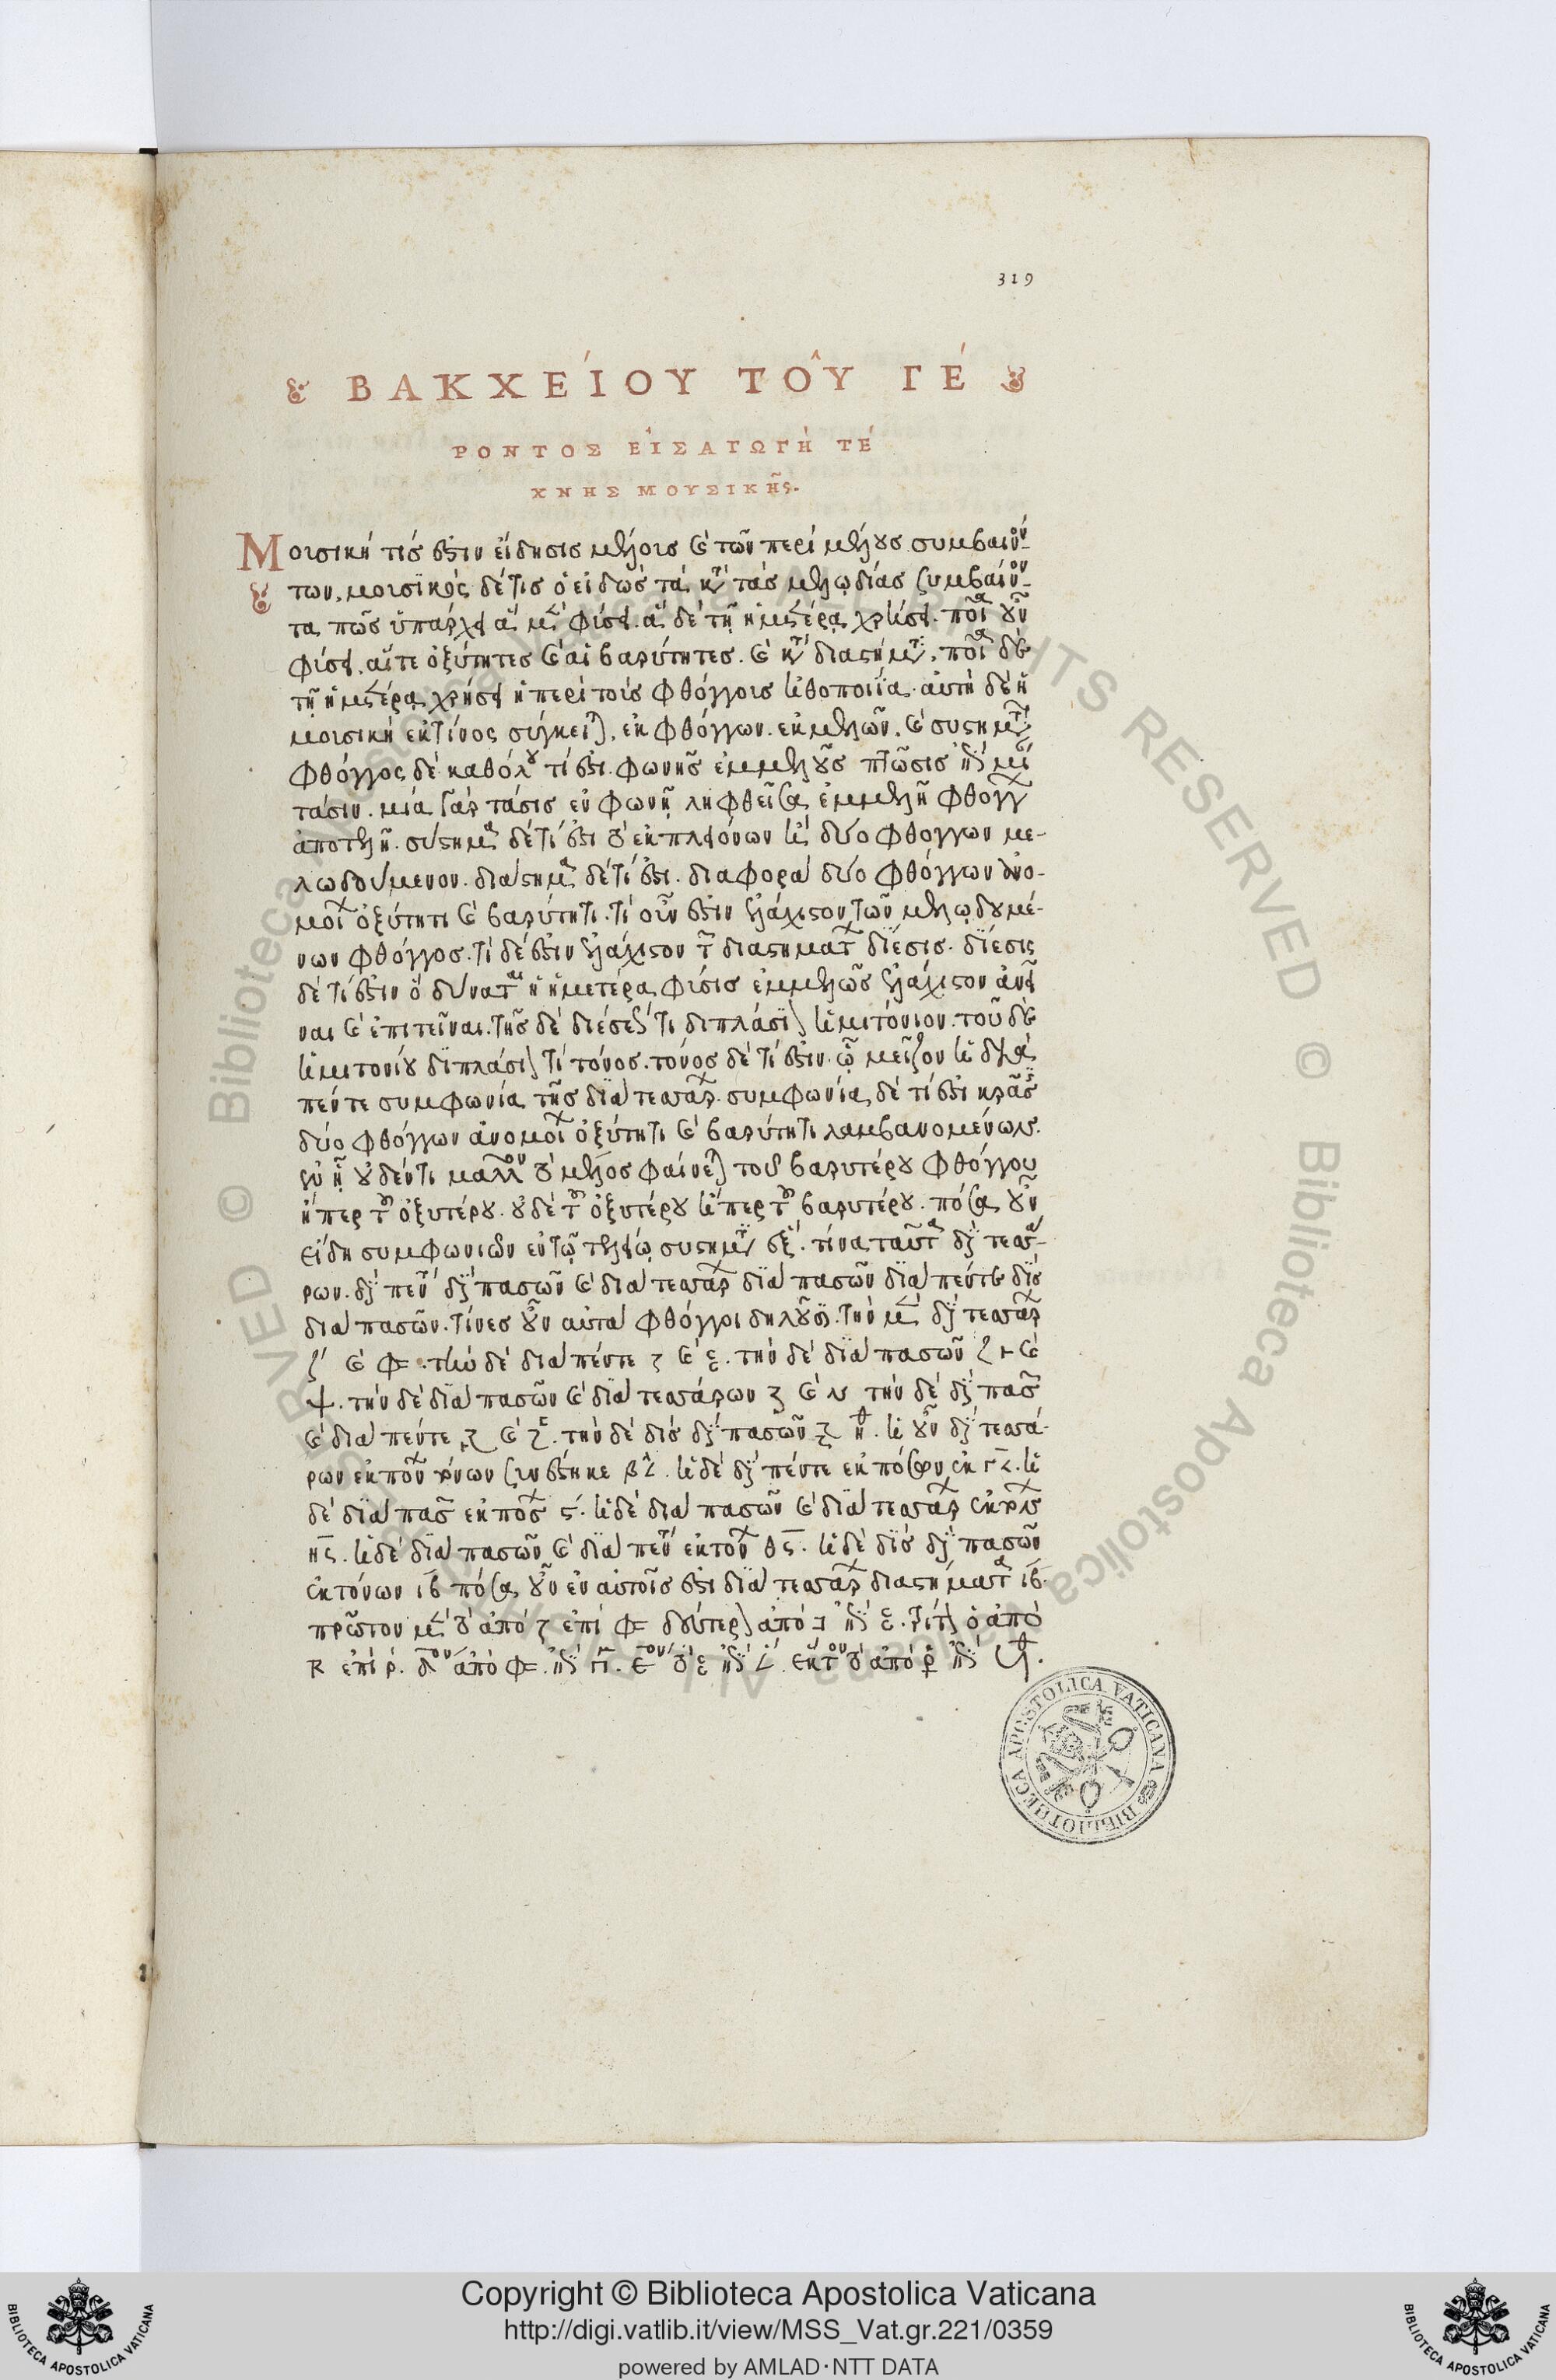 319
ΒΑΚΧΕΊΟΥ ΤΟῦ ΓΈ
ΡΟΝΤΟΣ ΕἸΣΑΓΩΓῊ ΤΈ
ΧΝΗΣ ΜΟΥΣΙΚῆς.
Μοισική τίς ἐστιν εἴδησις μέλους καὶ τῶν περὶ μέλους συμβαινόν-
των. μοισικὸς δέ τις ὁ εἰδὼς τὰ κατὰ τὰς μελῳδίας συμβαίνον-
τα πῶς ὑπάρχει ἃ μὲν φύσει. ἃ δὲ τῇ ἡμετέρᾳ χρήσει. ποῖα οὖν
φύσει. αἵτε ὀξύτητες καὶ αἱ βαρύτητες. καὶ κατὰ διαστήματα. ποῖα δὲ
τῇ ἡμετέρᾳ χρήσει ἡ περὶ τοὺς φθόγγοις ἠθοποιία. αὐτὴ δὲ ἡ
μοισικὴ ἐκ τίνος σύγκειται. ἐκ φθόγγων. ἐκ μελῶν. καὶ συστημάτων
φθόγγος δὲ καθόλου τί ἐστι. φωνῆς ἐμμελοῦς πτῶσις ἐπὶ μίαν
τάσιν. μία γὰρ τάσις ἐν φωνῇ ληφθεῖσα ἐμμελῆ φθόγγον
ἀποτελῆ. σύστημα δὲ τί ἐστι τὸ ἐκ πλειόνων ἢ δύο φθογγων με-
λωδούμενον. διάστημα δὲ τί ἐστι. διαφορὰ δύο φθόγγων ἀνο-
μοίων ὀξύτητι καὶ βαρύτητι. τί οὖν ἐστιν ἐλάχιστον τῶν μελῳδουμέ-
νων φθόγγος. τί δέ ἐστιν ἐλάχιστον τῶν διαστημάτων δίεσις. δίεσις
δὲ τί ἐστιν ὃ δύναται ἡ ἡμετέρα φύσις ἐμμελῶς ἐλάχιστον ἀνεῖ
ναι καὶ ἐπιτεῖναι. τῆς δὲ διέσεως τί διπλάσιον ἡμιτόνιον. τοῦ δὲ
ἡμιτονίου διπλάσιον τί τόνος. τόνος δὲ τί ἐστιν. ᾧ μεῖζον ἡ διὰ
πέντε συμφωνία τῆς διὰ τεσσάρων. συμφωνία δὲ τί ἐστι κρᾶσις
δύο φθόγγων ἀνομοίων ὀξύτητι καὶ βαρύτητι λαμβανομένων.
ἐν ᾗ οὐδέν τι μᾶλλον τὸ μέλος φαίνεται τοῦ βαρυτέρου φθόγγου
ἤπερ τοῦ ὀξυτέρου. οὐδὲ τοῦ ὀξυτέρου ἤπερ τοῦ βαρυτέρου. πόσα οὖν
εἴδη συμφωνιῶν ἐν τῷ τελείῳ συστήματι ἕξ. τίνα ταῦτα διὰ τεσσά-
ρων. διὰ πέντε διὰ πασῶν καὶ διὰ τεσσάρων διὰ πασῶν διὰ πέντε δὶς
διὰ πασῶν. τίνες οὖν αὐτὰ φθόγγοι δηλοῦσι. τὴν μὲν διὰ τεσσάρων
τὴν δὲ διὰ πέντε
τὴν δὲ διὰ πασῶν
τὴν δὲ διὰ πασῶν καὶ διὰ τεσσάρων
τὴν δὲ διὰ πασῶν
καὶ διὰ πέντε
τὴν δὲ δὶς διὰ πασῶν
ἡ οὖν διὰ τεσσά-
ρων ἐκ πόσων τόνων συνέστηκε β
ἡ δὲ διὰ πέντε ἐκ πόσων ἐκ γ
ἡ
δὲ διὰ πασῶν ἐκ πόσων ϛ. ἡ δὲ διὰ πασῶν καὶ διὰ τεσσάρων
ἡ δὲ διὰ πασῶν καὶ διὰ πέντε ἐκ τόνων θ
ἡ δὲ δὶς διὰ πασῶν
ἐκ τόνων ιβ πόσα οὖν ἐν αὐτοῖς ἐστι διὰ τεσσάρων διαστήματα ιβ.
πρῶτον μὲν τὸ ἀπὸ
ἐπὶ
δεύτερον ἀπὸ
BIBLIOTHECA APOSTOLICA VATICANA
ALL RIGHTS RESERVED © Biblioteca Apostolica Vaticana
Copyright © Biblioteca Apostolica Vaticana
http://digi.vatlib.it/view/MSS_Vat.gr.221/0359
powered by AMLAD·NTT DATA
BIBLIOTECA APOSTOLICA VATICANA
BIBLIOTECA APOSTOLICA VATICANA